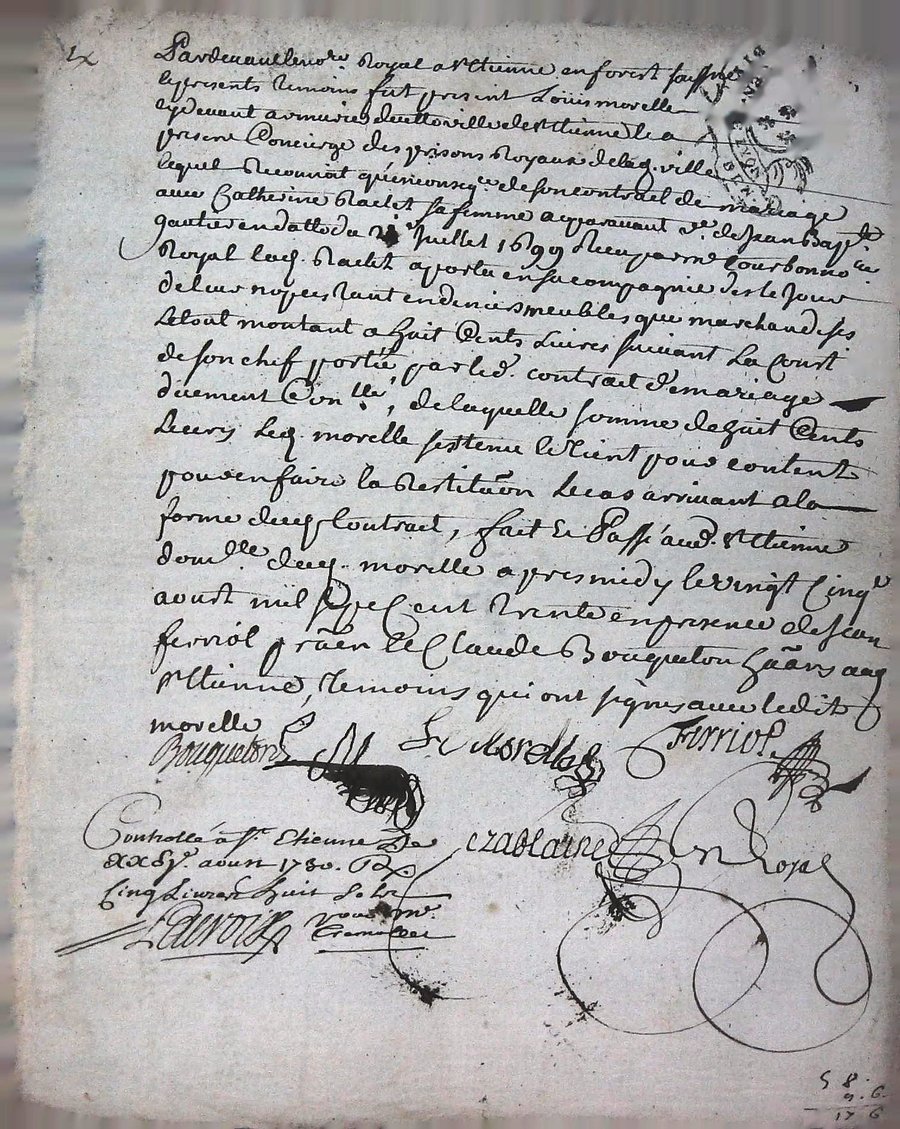 2x
Pardevant le no.re Royal a St Etienne en forest soussigné
le presents temoins fut present Loüis morelle
cydevant armurier de cette ville de St Etienne le a
present Concierge des prisons Royaux de lad. ville
lequel Reconnoit qu'en conseq.ce de son contract de mariage
avec Catherine Raclet sa femme auparavant v.e de Jean Bap.te
gautier en datte du 2 Juillet 1699 Receu par m.e Courbonno.re
Royal lad. Raclet a porté en sa compagnie des le Jour
de leur nopces tant en deniers meubles que marchandises
Le tout montant a huit Cents Livres suivant La
de son chef portée par led. contract de mariage
duement Con.llé, de laquelle somme de huit Cents
Livres Led. morelle s'est tenu le tient pour content
pour en faire la Restituon le cas arrivant a la
forme dud. Contract, fait et Passé aud. St Etienne
dom.lle dud. morelle apres midy le vingt Cinq.e
aoust mil sept Cent trente en presence de Jean
ferriol praen et Claude Bouqueton aud
St Etienne, temoins qui ont signés avec ledit
morelle
Bouqueton L Morelle Ferriol
Controllé à St. Etienne Le
XXV. aoust 1730. R
Cinq Livres huit Sols
pour m.r
Royal
5 8
9. 6.
17 6